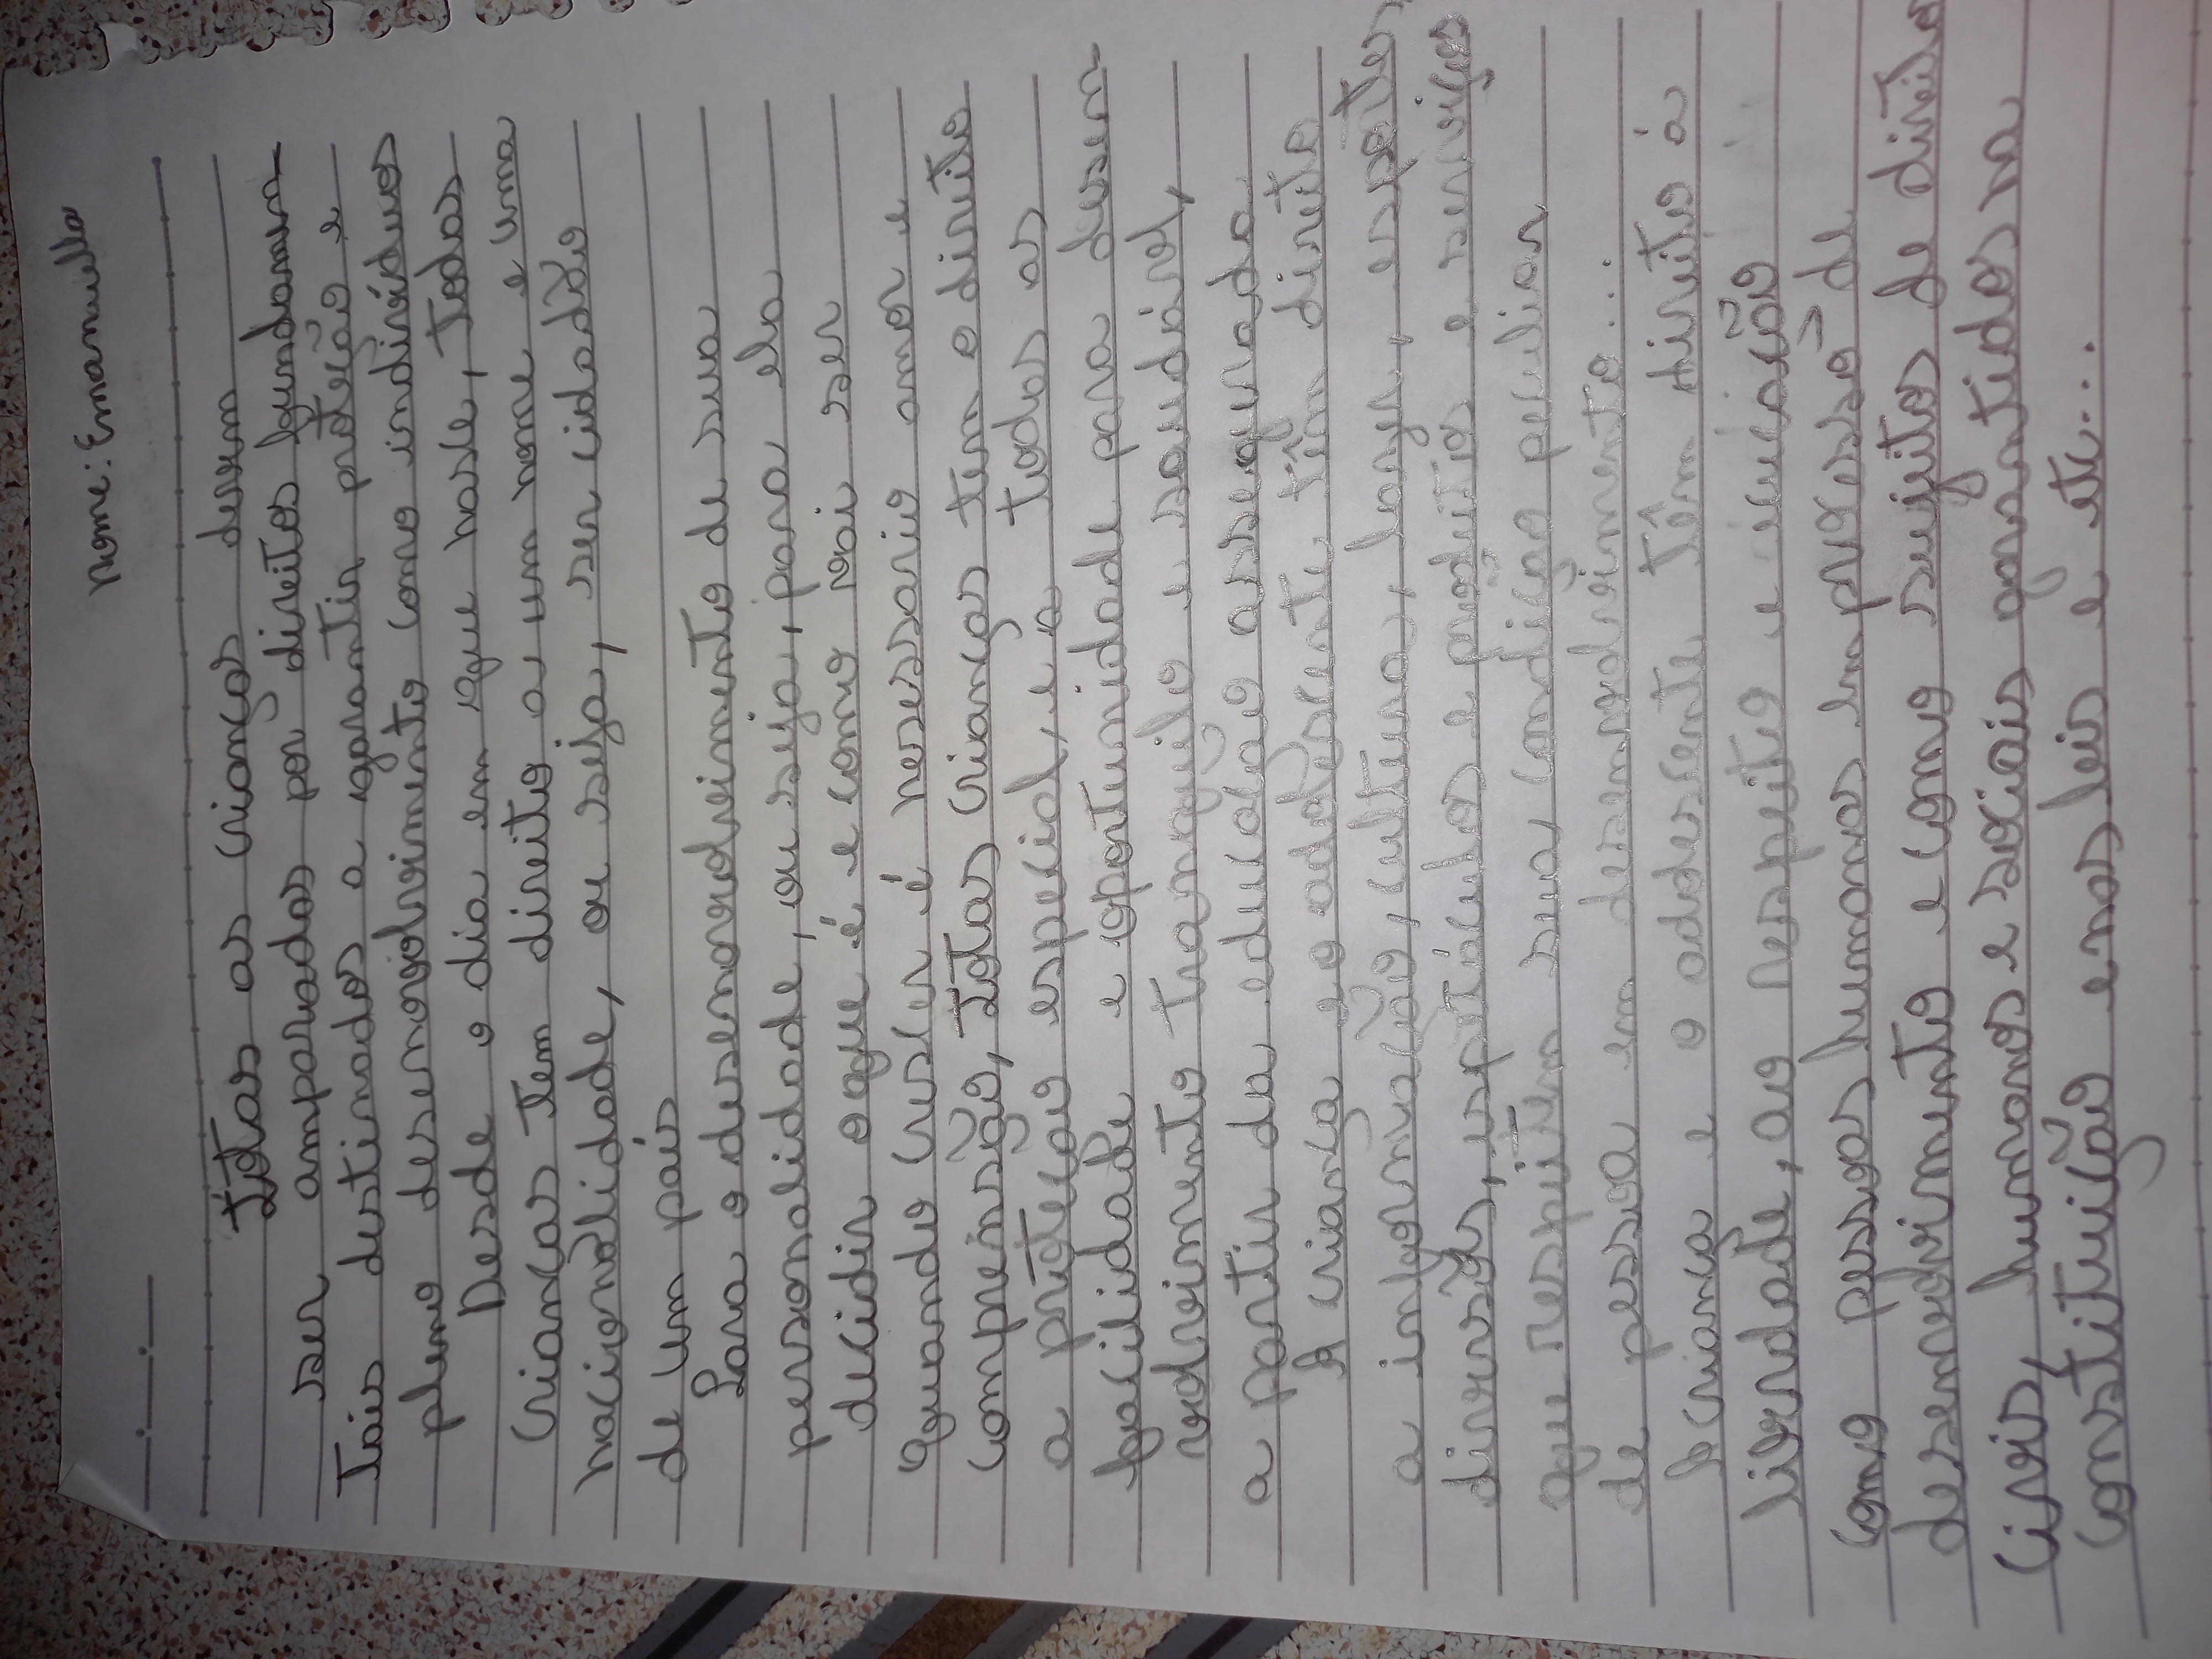 Nome: Emanuella
Totas as crianças devem
ser amparadas por direitos fundamen
tais destinados a garantir proteção e
pleno desenvolvimento como indivíduos
Desde o dia em que nasce, todas
crianças tem direito a um nome e uma
nacionalidade, ou seja, ser cidadão
de um país
Para o desenovolvimento de sua
personalidade, ou seja, para ela
decidir oque é e como vai ser
Quando crescer é nesessario amor e
comprensão, totas crianças tem o direito
a proteção especial, e a todas as
facilidade e oportunidade para desem
volvimento tranquilo e saudável,
a partir da educação assegurada
A criança e o adolescente têm direito
a informação, cultura, lazer, esportes,
diversõs, espetáculos e produtos e serviços
que respeitem sua condição peculiar
de pessoa em desenvolvimento...
A criança e o adolescente têm direito á
liberdade, ao respeito e
como pessoas humanas em processo de
desenvolvimento e como sujeitos de direito
civis, humanos e sociais garantidos na
constituição e nas leis e etc...